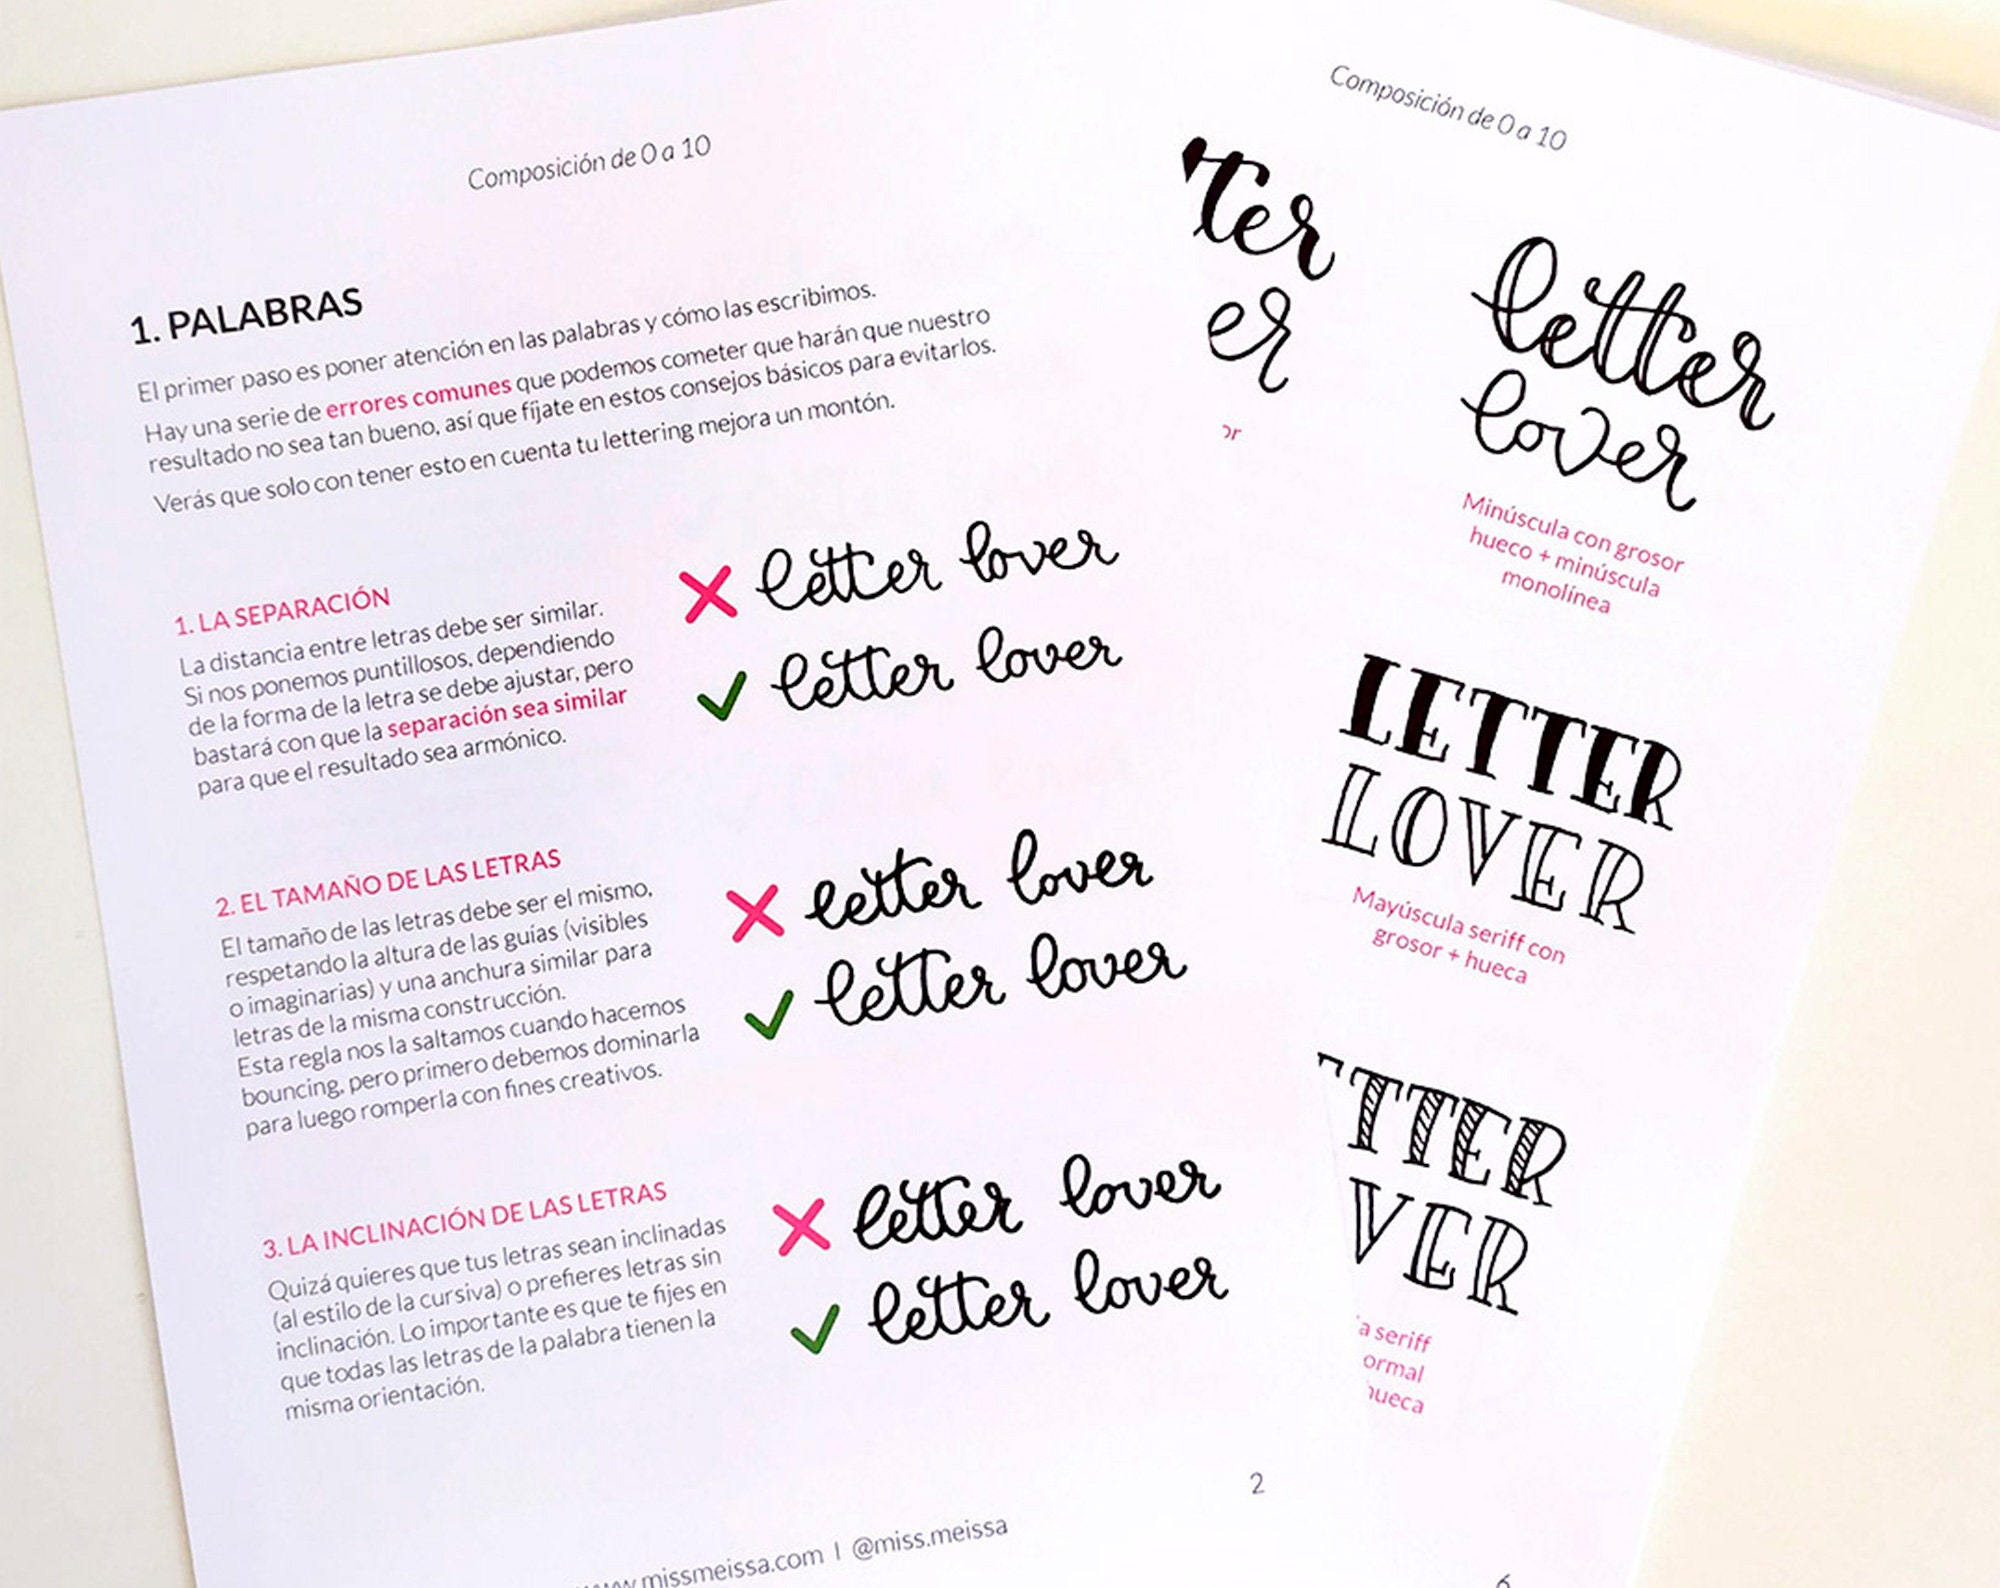 Composición de 0 a 10
1. PALABRAS
El primer paso es poner atención en las palabras y cómo las escribimos.
Hay una serie de errores comunes que podemos cometer que harán que nuestro
resultado no sea tan bueno, así que fíjate en estos consejos básicos para evitarlos.
Verás que solo con tener esto en cuenta tu lettering mejora un montón.
1. LA SEPARACIÓN
La distancia entre letras debe ser similar.
Si nos ponemos puntillosos, dependiendo
de la forma de la letra se debe ajustar, pero
bastará con que la separación sea similar
para que el resultado sea armónico.
letter lover
letter lover
2. EL TAMAÑO DE LAS LETRAS
El tamaño de las letras debe ser el mismo,
respetando la altura de las guías (visibles
o imaginarias) y una anchura similar para
letras de la misma construcción.
Esta regla nos la saltamos cuando hacemos
bouncing, pero primero debemos dominarla
para luego romperla con fines creativos.
letter lover
letter lover
3. LA INCLINACIÓN DE LAS LETRAS
Quizá quieres que tus letras sean inclinadas
(al estilo de la cursiva) o prefieres letras sin
inclinación. Lo importante es que te fijes en
que todas las letras de la palabra tienen la
misma orientación.
letter lover
letter lover
2
www.missmeissa.com | @miss.meissa
Composición de 0 a 10
ter
er
or
letter
lover
Minúscula con grosor
hueco + minúscula
monolínea
LETTER
LOVER
Mayúscula seriff con
grosor + hueca
TTER
VER
a seriff
ormal
hueca
6